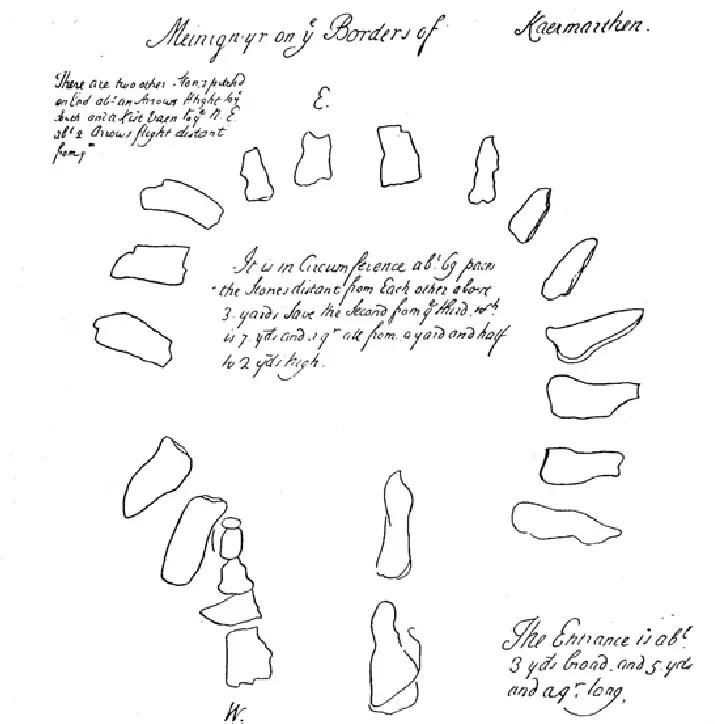 Meinign-yr on yͤ Borders of Kaermarthen.
There are two other Stones pitched
on End abᵗ an Arrows flight
South and a Kist vaen to yͤ N. E
abᵗ 2 Arrows flight distant
from yᵐ
E.
It is in Circumference abᵗ 69 paces
the Stones distant from Each other above
3. yards Save the Second from yͤ third. wᶜʰ
is 7. yds and 1 qʳ all from a yard and half
to 2 yds high.
The Entrance is abᵗ
3 yds broad. and 5 yds
and a qʳ. long.
W.